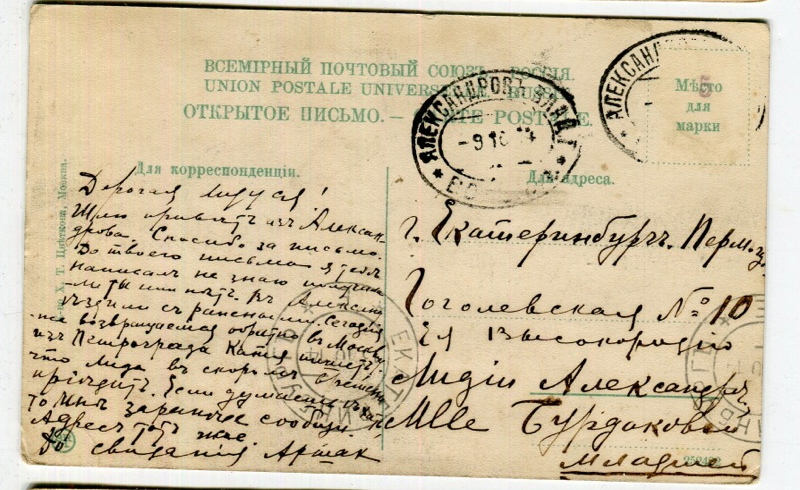 ВСЕМІРНЫЙ ПОЧТОВЫЙ СОЮЗЪ. РОССІЯ.
UNION POSTALE UNIVERSELLE. RUSSIE.
ОТКРЫТОЕ ПИСЬМО. — CARTE POSTALE.
Мѣсто
для
марки
5
АЛЕКСАНДРОВЪ ВЛАД. Г.
-9 10 14
АЛЕКСАНД
Для корреспонденціи.
Для адреса.
Х. Т. Цвѣткова, Москва.
Дорогая Лидуся!
Шлю привѣтъ изъ Алексан-
дрова. Спасибо за письмо.
До твоего письма я тебѣ
написалъ не знаю получи-
ла ты или нѣтъ. Въ Алексан
ѣздили съ ранеными. Сегодня
же возвращаемся обратно въ Москву
изъ Петрограда Катя пишетъ,
что Лида въ скоромъ времени
пріѣдетъ. Если
то мнѣ заранѣе сообщи.
Адресъ тотъ же.
До свиданія Аршак
г. Екатеринбургъ. Перм. г.
Гоголевская № 10
Ея Высокородію
Лидіи Александр.
Mlle Бурдаковой
младшей
ЕКАТЕРИНБУРГЪ